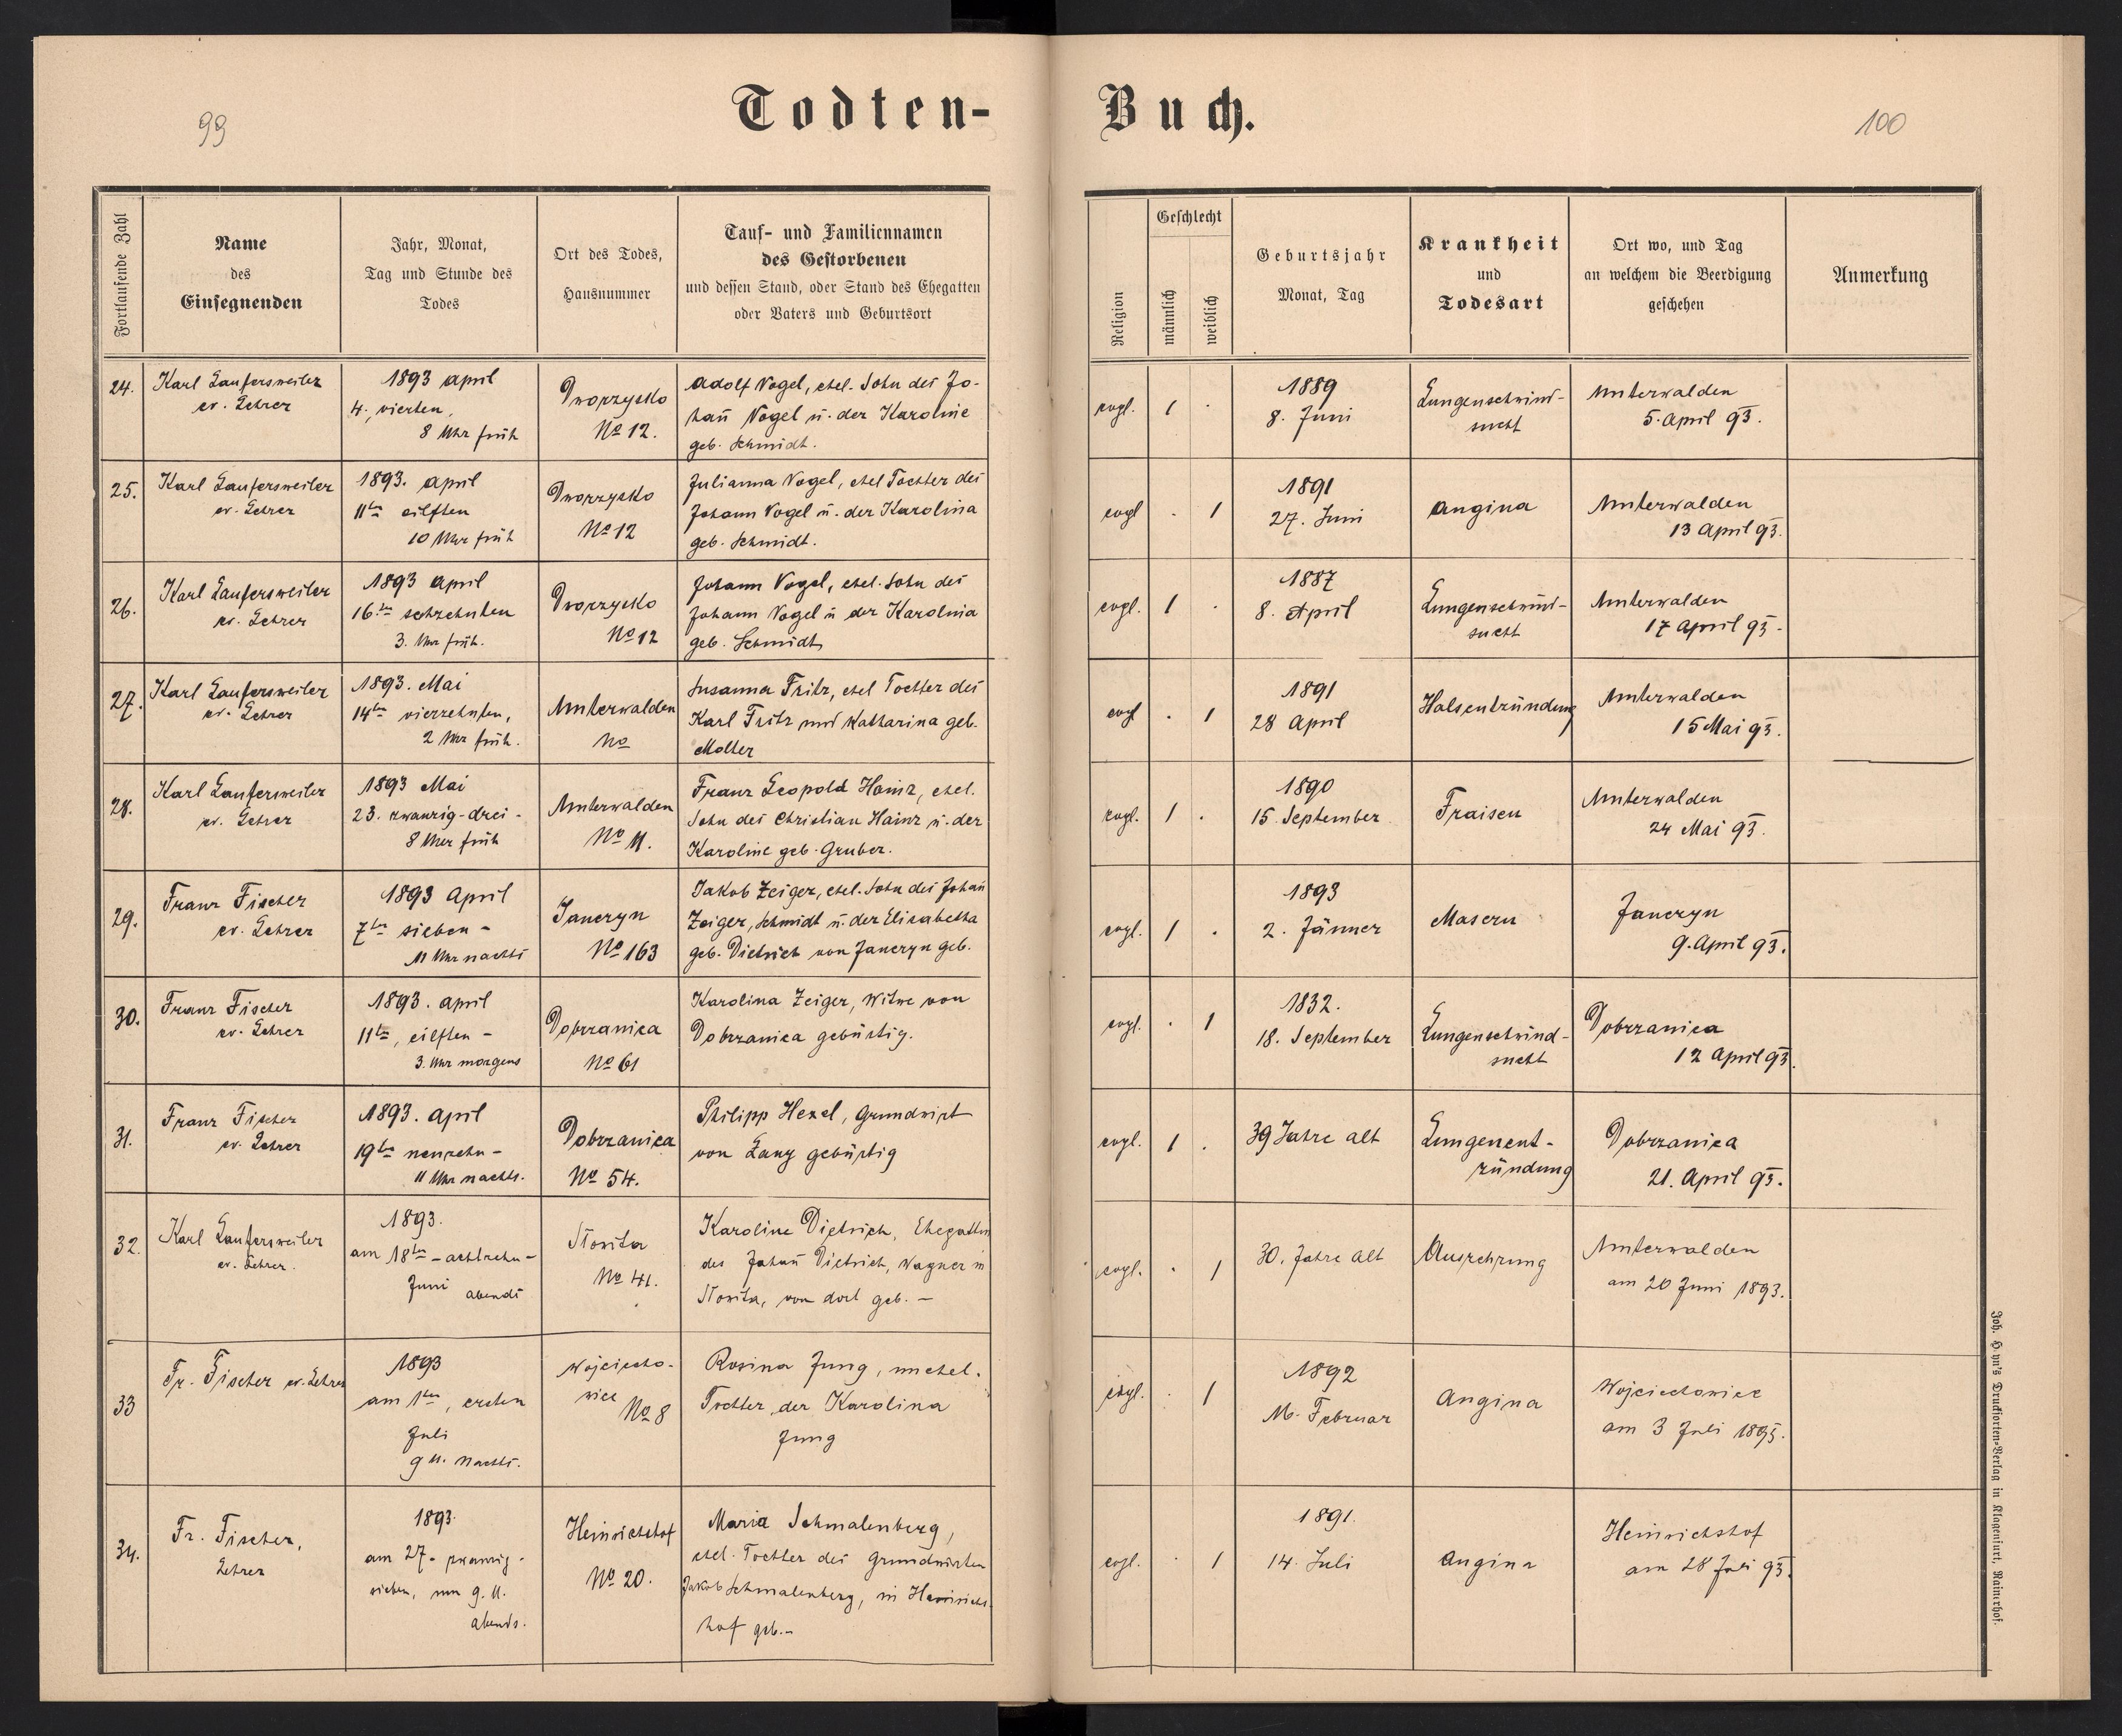 Todten-Buch.
99
100
Fortlaufende Zahl
Name
des
Einsegnenden
Jahr, Monat,
Tag und Stunde des
Todes
Ort des Todes,
Hausnummer
Tauf- und Familiennamen
des Gestorbenen
und dessen Stand, oder Stand des Ehegatten
oder Vaters und Geburtsort
Religion
Geschlecht
männlich
weiblich
Geburtsjahr
Monat, Tag
Krankheit
und
Todesart
Ort wo, und Tag
an welchem die Beerdigung
geschehen
Anmerkung
24.
Karl Laufersweiler
ev. Lehrer
1893 april
4., vierten,
8 Uhr früh
Dworzysko
No 12.
Adolf Vogel, ehel. Sohn des Jo-
hañ Vogel u. der Karoline
geb. Schmidt.
evgl.
1
.
1889
8. Juni
Lungenschwind-
sucht
Unterwalden
5. April 93.
25.
Karl Laufersweiler
ev. Lehrer
1893. april
11ten eilften
10 Uhr früh
Dworzysko
No 12
Julianna Vogel, ehel Tochter des
Johann Vogel u. der Karolina
geb. Schmidt.
evgl
.
1
1891
27. Juni
Angina
Unterwalden
13 April 93.
26.
Karl Laufersweiler
ev. Lehrer
1893 april
16ten sechzehnten
3. Uhr früh.
Dworzysko
No 12
Johann Vogel, ehel. Sohn des
Johann Vogel u der Karolina
geb. Schmidt
evgl.
1
.
1887
8. April
Lungenschwind-
sucht
Unterwalden
17 April 93.
27.
Karl Laufersweiler
ev. Lehrer
1893. Mai
14ten vierzehnten,
2 Uhr früh.
Unterwalden
No
Susanna Fritz, ehel Tochter des
Karl Fritz und Katharina geb.
Moller
evgl
.
1
1891
28 April
Halsentzündung
Unterwalden
15 Mai 93.
28.
Karl Laufersweiler
ev. Lehrer
1893 Mai
23. zwanzig-drei-
8 Uhr früh
Unterwalden
No 11.
Franz Leopold Hainz, ehel.
Sohn des Christian Hainz u. der
Karoline geb. Gruber.
evgl.
1
.
1890
15. September
Fraisen
Unterwalden
24 Mai 93.
29.
Franz Fischer
ev. Lehrer
1893 April
7ten sieben-
11 Uhr nachts
Janczyn
No 163
Jakob Zeiger, ehel. Sohn des Johañ
Zeiger, Schmidt u. der Elisabetha
geb. Dietrich von Janczyn geb.
evgl.
1
.
1893
2. Jänner
Masern
Janczyn
9. April 93.
30.
Franz Fischer
ev. Lehrer
1893. april
11ten, eilften-
3. Uhr morgens
Dobrzanica
No 61
Karolina Zeiger, Witwe von
Dobrzanica gebürtig.
evgl.
.
1
1832.
18. September
Lungenschwind-
sucht
Dobrzanica
12 April 93.
31.
Franz Fischer
ev. Lehrer
1893. april
19ten neunzehn-
11 Uhr nachts.
Dobrzanica
No 54.
Philipp Hexel, Grundwirt
von Lany gebürtig
evgl.
1
.
39 Jahre alt
Lungenent-
zündung
Dobrzanica
21. April 93.
32.
Karl Laufersweiler
ev. Lehrer.
1893.
am 18ten - achtzehn-
Juni abends
Słowita
No 41.
Karoline Dietrich, Ehegattin
des Johañ Dietrich, Wagner in
Słowita, von dort geb. -
evgl.
.
1
30. Jahre alt
Auszehrung
Unterwalden
am 20 Juni 1893.
33
Fr. Fischer ev. Lehrer
1893
am 1ten, ersten
Juli
9 U. nachts.
Wojciecho-
wice
No 8
Rosina Jung, unehel.
Tochter der Karolina
Jung
evgl.
.
1
1892
M. Februar
Angina
Wojciechowice
am 3 Juli 1893.
34.
Fr. Fischer,
Lehrer
1893.
am 27- zwanzig-
sieben, um 9. U.
abends.
Heinrichshof
No 20.
Maria Schmalenberg,
ehel. Tochter des Grundwirten
Jakob Schmalenberg, in Heinrichs-
hof geb.-
evgl.
.
1
1891.
14. Juli
Angina
Heinrichshof
am 28 Juli 93.
Joh. Heyn's Drucksorten-Verlag in Klagenfurt, Rainerhof.